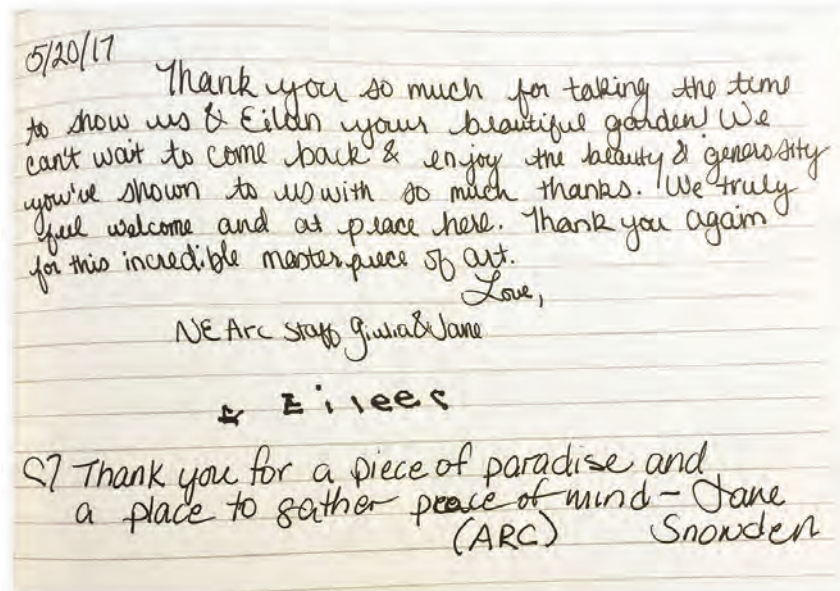 5/20/17
Thank you so much for taking the time
to show us & Eilan your beautiful garden! We
can't wait to come back & enjoy the beauty & generosity
you've shown to us with so much thanks. We truly
feel welcome and at peace here. Thank you again
for this incredible masterpiece of art.
Love,
NE Arc staff Giulia & Jane
Eileec
♡ Thank you for a piece of paradise and
a place to gather peace of mind - Jane
(ARC) Snowden